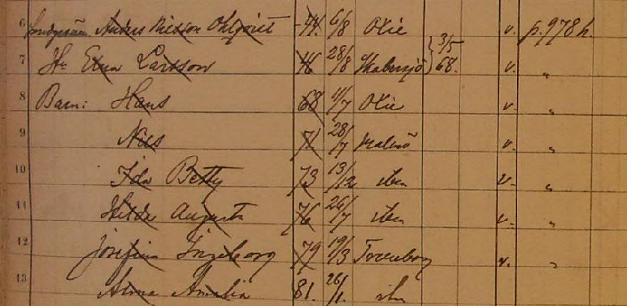 6 Landyman Anders Nilsson Ohlqvist 44. 6/8 Oxie v. p. 978 h.
7 H. Elna Larsson 46 28/8 Skabersjö 3/5 68. v. "
8 Barn: Hans 68 11/7 Oxie v. "
9 Nils 71 28/7 v. "
10 Ida Betty 73 13/12 ibm v. "
11 Hilda Augusta 76 26/7 ibm v. "
12 Josefina Ingeborg 79 19/3 Torreberg v. "
13 Alma Amalia 81. 26/1. ibm